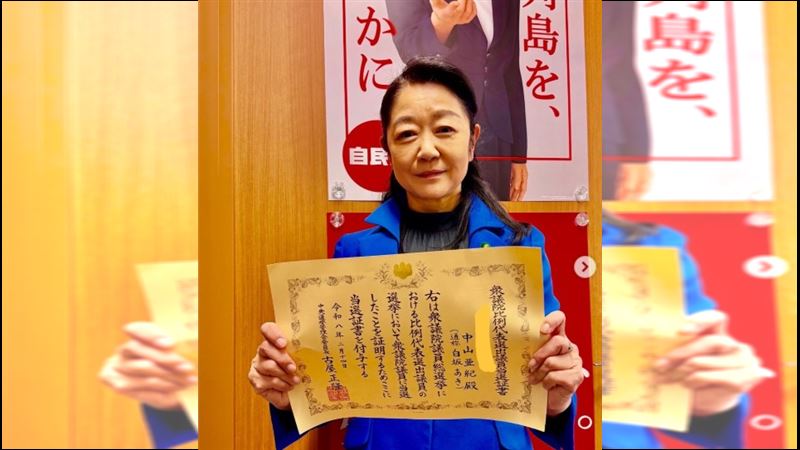 島を、
かに
自民
衆議院比例代表選出議員当選証書
中山亜紀殿
(通称 白坂あき)
右は衆議院議員総選挙に
おける比例代表選出議員の
選挙において衆議院議員に当選
したことを証明するためここに
当選証書を付与する
令和八年二月十四日
古屋正
島を、